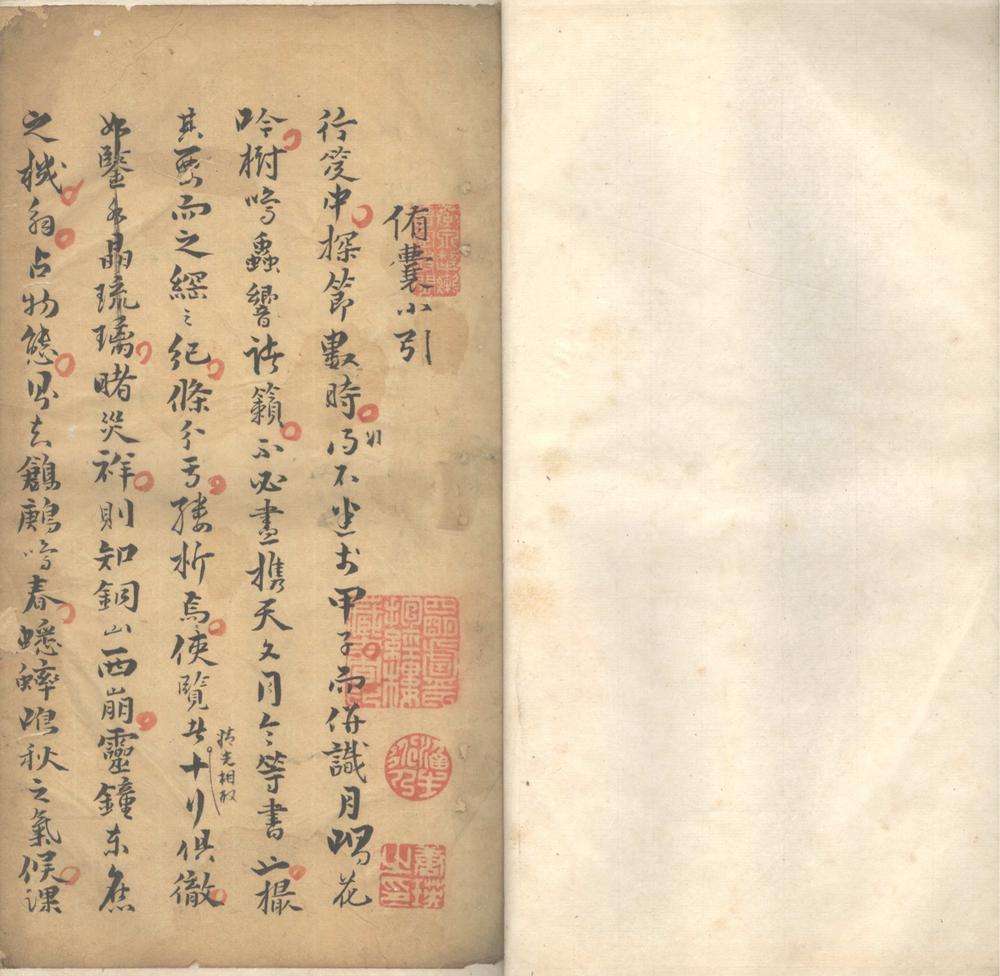 侑囊小引
行笈中探節數時乃不迷於甲子而併識月賜花
如
吟樹鳴蟲響諸籟不必盡携天文月令等書止撮
其要而之綱之紀條分兮縷析焉使覽者十行俱徹
精光相取
如鑒水晶琉璃睹災祥則知銅山西崩靈鐘東應
之機翁占物態思去鶬鶊鳴春蟋蟀唱秋之氣候課